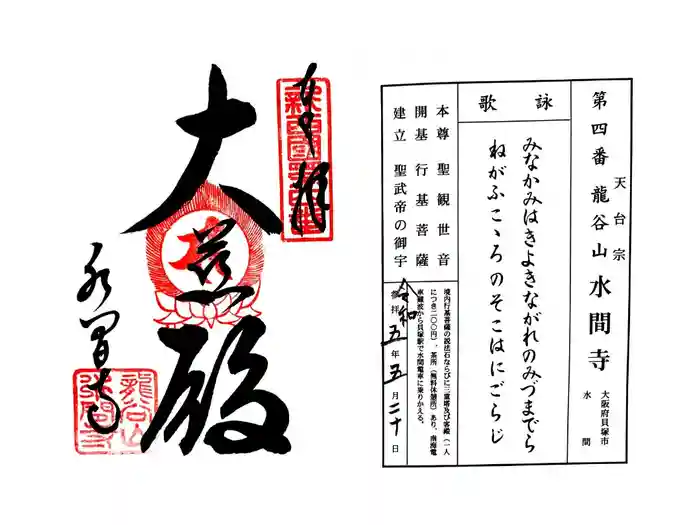 奉拝
大悲殿
水間寺
新西國第四番
龍谷山
水間寺
第四番 天台宗 龍谷山 水間寺 大阪府貝塚市水間
詠歌
みなかみはきよきながれのみづまでら
ねがふこゝろのそこはにごらじ
本尊 聖観世音
開基 行基菩薩
建立 聖武帝の御宇
境内行基菩薩の説法石ならびに三重塔及び客殿（一人
につき二〇〇円）、茶所（無料休憩所）あり、南海電
車難波から貝塚駅で水間電車に乗りかえる。
令和
参拝 五年五月二十日